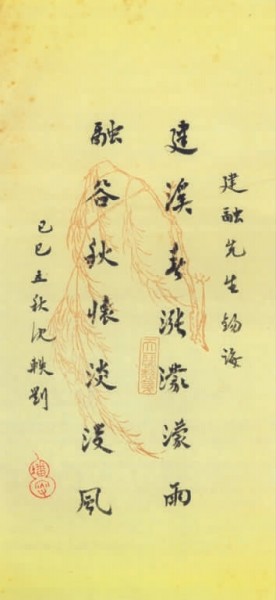 建融先生鈞誨
建溪春漲濛濛雨
融谷秋懷淡淡風
己巳立秋沈軼劉